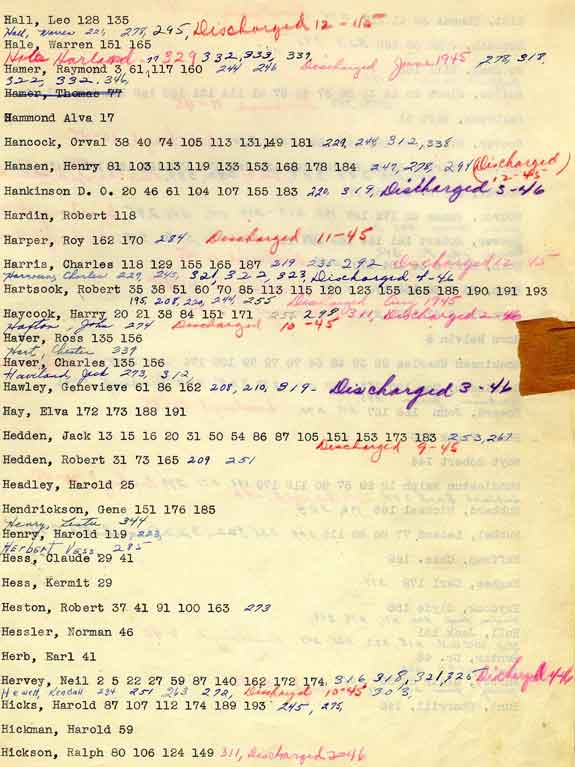 Hall, Leo 128 135
Hall, Warren 221, 278, 295, Discharged 12-1/45
Hale, Warren 151 165
Hile Harland 329 332, 333, 339,
Hamer, Raymond 3 61, 117 160 244 246 Discharged June 1945 278, 317,
322, 332, 346,
Hamer, Thomas 77
Hammond Alva 17
Hancock, Orval 38 40 74 105 113 131, 149 181 229, 244 312, 338
Hansen, Henry 81 103 113 119 133 153 168 178 184 247, 278, 294 (Discharged) 12-45
Hankinson D. O. 20 46 61 104 107 155 183 220, 319, Discharged 3-46
Hardin, Robert 118
Harper, Roy 162 170 284 Discharged 11-45
Harris, Charles 118 129 155 165 187 219 235 292 Discharged 12 45
Harvans, Charles 229, 245, 321, 322, 323, Discharged 4-46
Hartsook, Robert 35 38 51 60 70 85 113 115 120 123 155 165 185 190 191 193
195, 208, 220, 244, 255 Discharged Aug 1945
Haycook, Harry 20 21 38 84 151 171 256 298 311, Discharged 2-46
Hayton, John 274 Discharged 10-45
Haver, Ross 135 156
Hart, Chester 239
Haver, Charles 135 156
Haviland Jed 273, 312,
Hawley, Genevieve 61 86 162 208, 210, 319- Discharged 3-46
Hay, Elva 172 173 188 191
Hedden, Jack 13 15 16 20 31 50 54 86 87 105 151 153 173 183 253, 267
Discharged 9-45
Hedden, Robert 31 73 165 209 251
Headley, Harold 25
Hendrickson, Gene 151 176 185
Henry, Lester 344
Henry, Harold 119 223,
Herbert Vess 285
Hess, Claude 29 41
Hess, Kermit 29
Heston, Robert 37 41 91 100 163 273
Hessler, Norman 46
Herb, Earl 41
Hervey, Neil 2 5 22 27 59 87 140 162 172 174, 316, 318, 321, 325 Discharged 4-46
Hewett, Kendall 234 251 263 272, Discharged 10-45 303,
Hicks, Harold 87 107 112 174 189 193 245, 275,
Hickman, Harold 59
Hickson, Ralph 80 106 124 149 311, Discharged 2-46